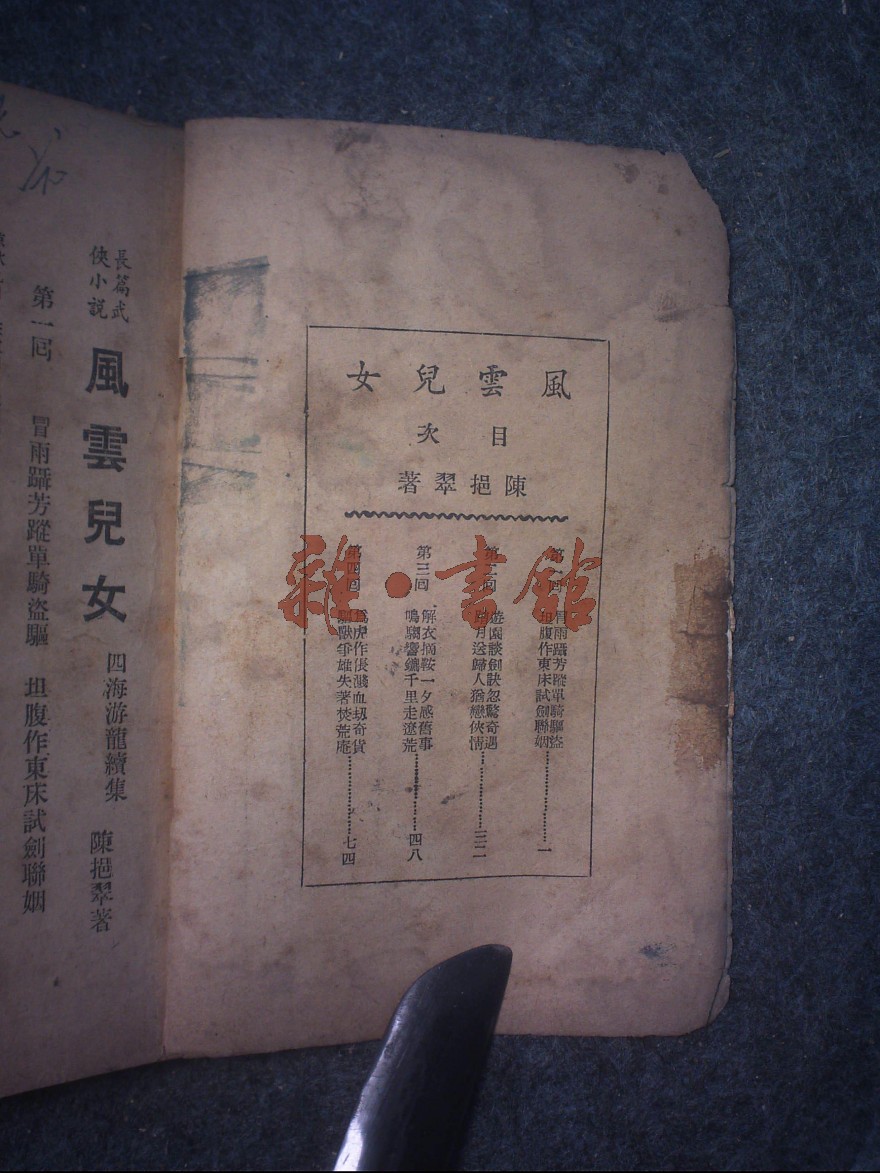 風雲兒女
目次
陳挹翠著
第一回
冒雨躡芳蹤單騎驅盜
坦腹作東床試劍聯姻…………一
第二回
遊園談劍訣忽驚奇遇
月送歸人猶戀俠情…………三二
第三回
解衣摘鞍一夕感舊事
鳴騶響鏑千里走遼荒…………四八
第四回
爲虎作倀濺血刼奇貨
驅獸爭雄失著焚荒庵…………七四
雜·書館
長篇武
俠小說
風雲兒女
四海游龍續集
陳挹翠著
第一回 冒雨躡芳蹤單騎盜驅 坦腹作東床試劍聯姻